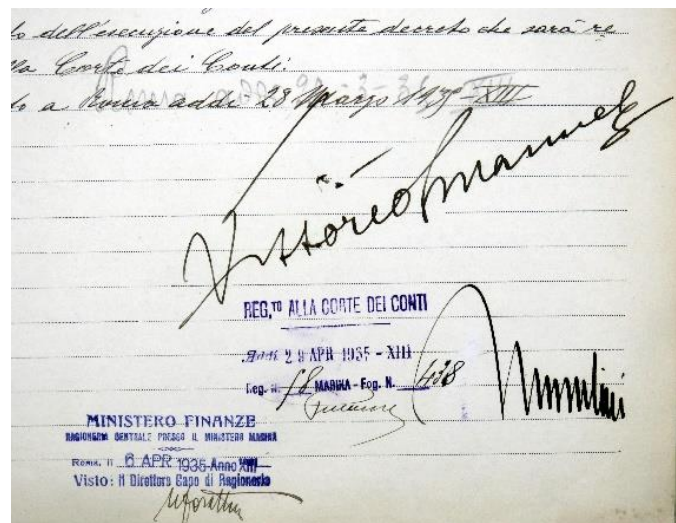 to dell'esecuzione del presente decreto che sarà re
lla Corte dei Conti.
to a Roma addì 28 Marzo 1935-XIII
Vittorio Emanuele
REG.TO ALLA CORTE DEI CONTI
Addì 29 APR 1935 - XIII
Reg. N. 18 MARINA - Fog. N. 438
Mussolini
MINISTERO FINANZE
RAGIONERIA CENTRALE PRESSO IL MINISTERO MARINA
Roma, lì 6 APR 1935 Anno XIII
Visto: Il Direttore Capo di Ragioneria